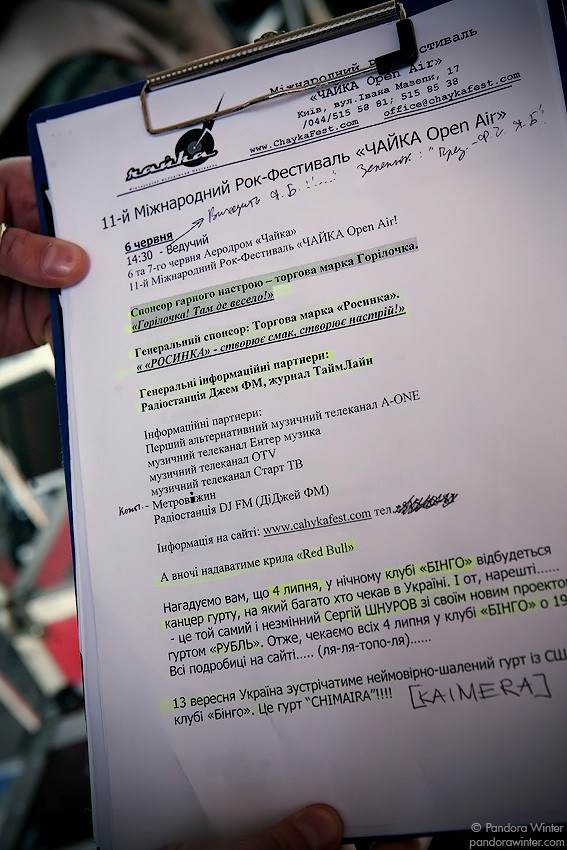 Міжнародний Рок-Фестиваль
«ЧАЙКА Open Air»
Київ, вул.Івана Мазепи, 17
/044/515 58 81; 515 85 38
www.ChaykaFest.com office@chaykafest.com
чайка
11-й Міжнародний Рок-Фестиваль «ЧАЙКА Open Air»
6 червня
14:30 - Ведучий
6 та 7-го червня Аеродром «Чайка»
11-й Міжнародний Рок-Фестиваль «ЧАЙКА Open Air!
Спонсор гарного настрою – торгова марка Горілочка.
«Горілочка! Там де весело!»
Генеральний спонсор: Торгова марка «Росинка».
« «РОСИНКА» - створює смак, створює настрій!»
Генеральні інформаційні партнери:
Радіостанція Джем ФМ, журнал ТаймЛайн
Інформаційні партнери:
Перший альтернативний музичний телеканал A-ONE
музичний телеканал Ентер музика
музичний телеканал OTV
музичний телеканал Старт ТВ
- Метровіжин
Радіостанція DJ FM (ДіДжей ФМ)
Інформація на сайті: www.cahykafest.com тел.
А вночі надаватиме крила «Red Bull»
Нагадуємо вам, що 4 липня, у нічному клубі «БІНГО» відбудеться
канцер гурту, на який багато хто чекав в Україні. І от, нарешті......
- це той самий і незмінний Сергій ШНУРОВ зі своїм новим проектом
гуртом «РУБЛЬ». Отже, чекаємо всіх 4 липня у клубі «БІНГО» о 19
Всі подробиці на сайті..... (ля-ля-топо-ля)......
13 вересня Україна зустрічатиме неймовірно-шалений гурт із США
клубі «Бінго». Це гурт “CHIMAIRA”!!!! [KAIMERA]
© Pandora Winter
pandorawinter.com